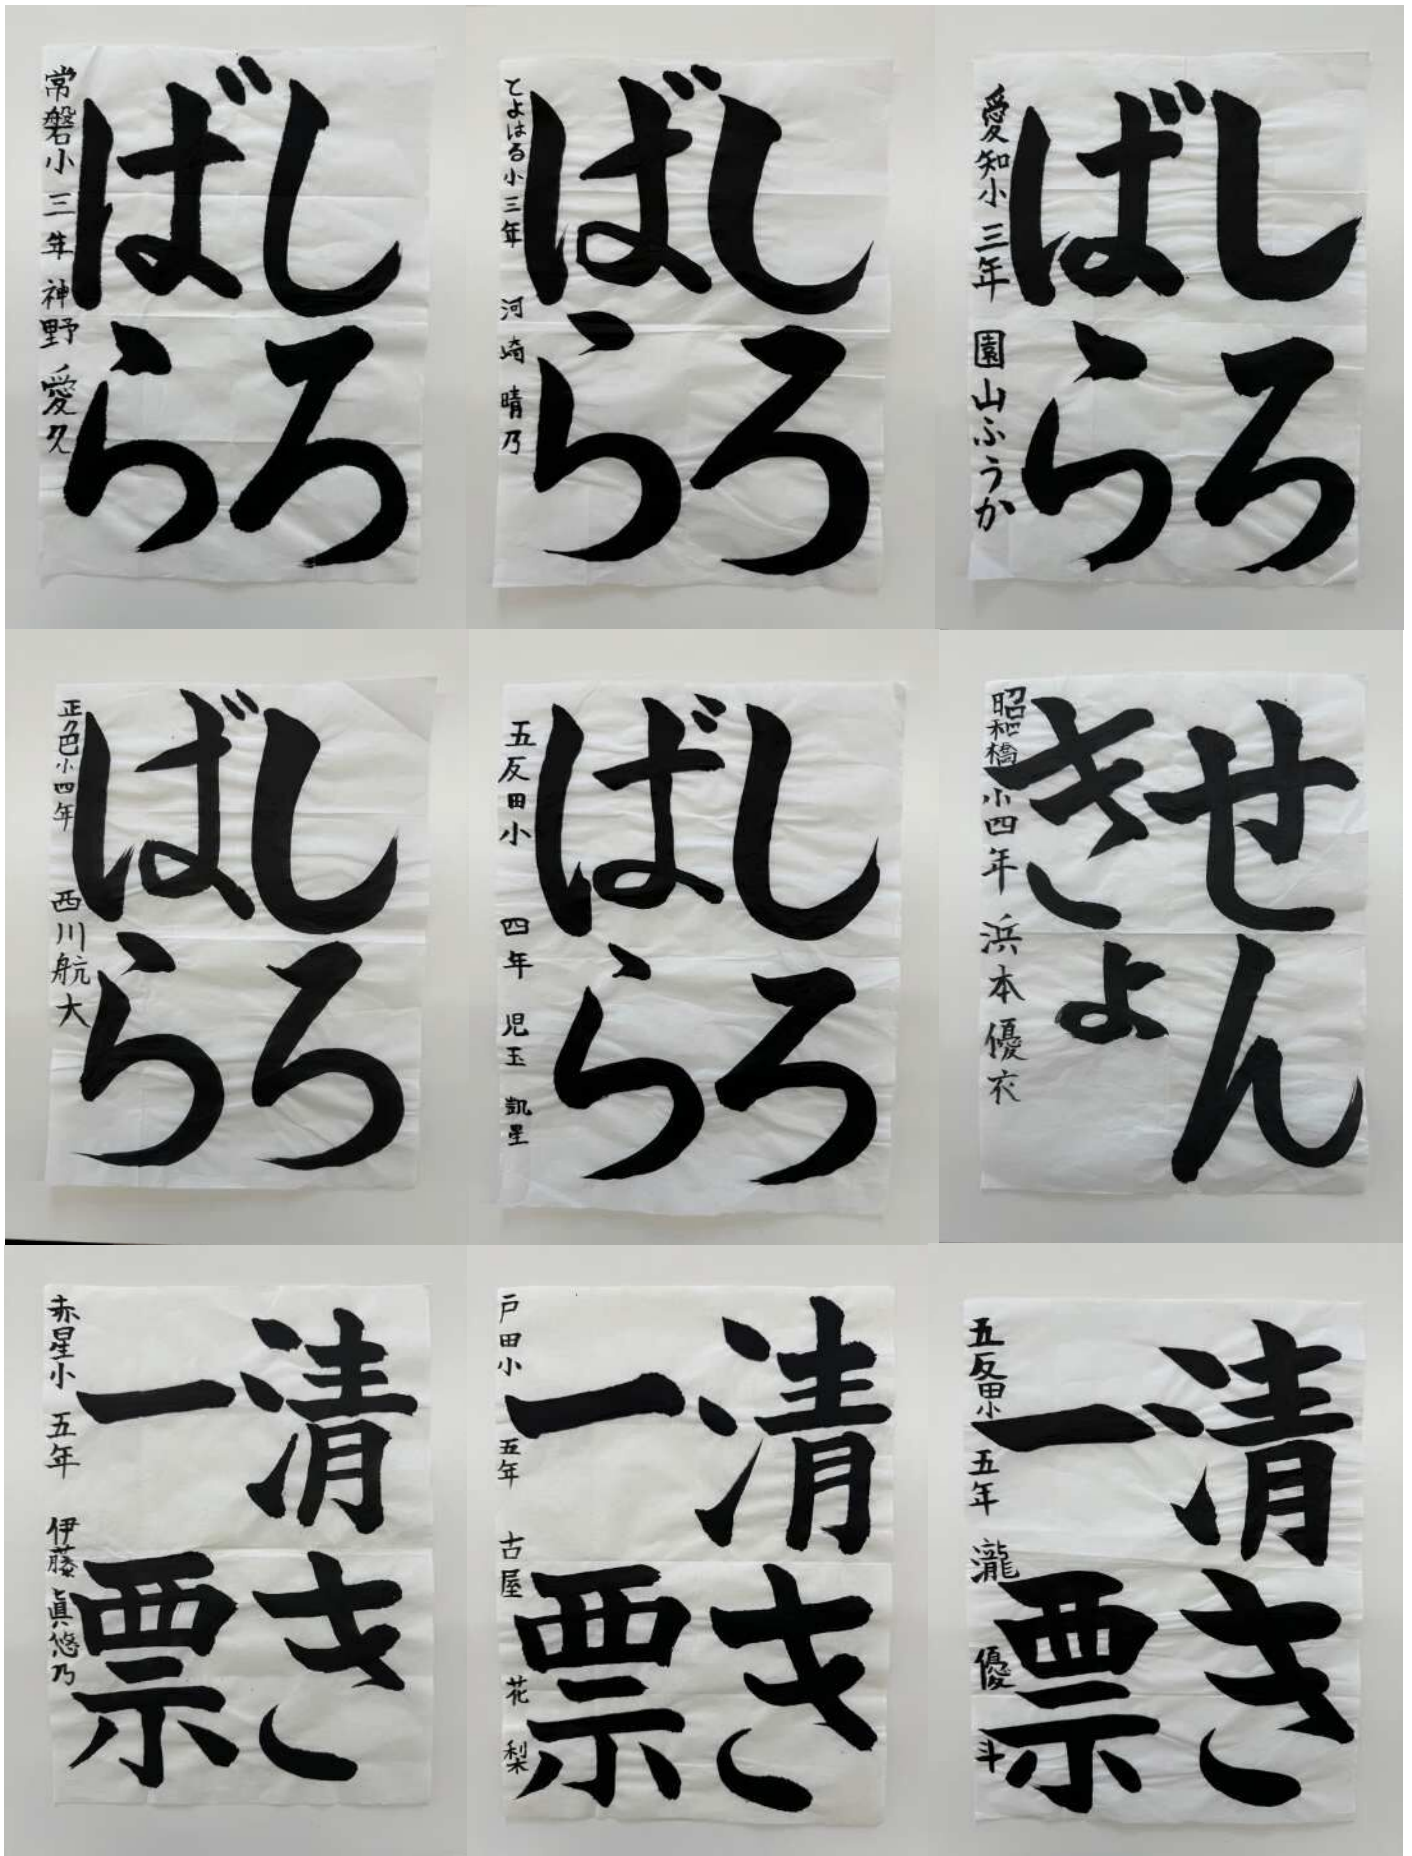 しろ
ばら
常磐小 三年 神野 愛久
しろ
ばら
とよはる小三年 河崎晴乃
しろ
ばら
愛知小 三年 園山ふうか
しろ
ばら
正色小四年 西川航大
しろ
ばら
五反田小 四年 児玉 凱星
せん
きょ
昭和橋小四年 浜本優衣
清き
一票
赤星小 五年 伊藤眞悠乃
清き
一票
戸田小 五年 古屋 花梨
清き
一票
五反田小 五年 瀧 優斗